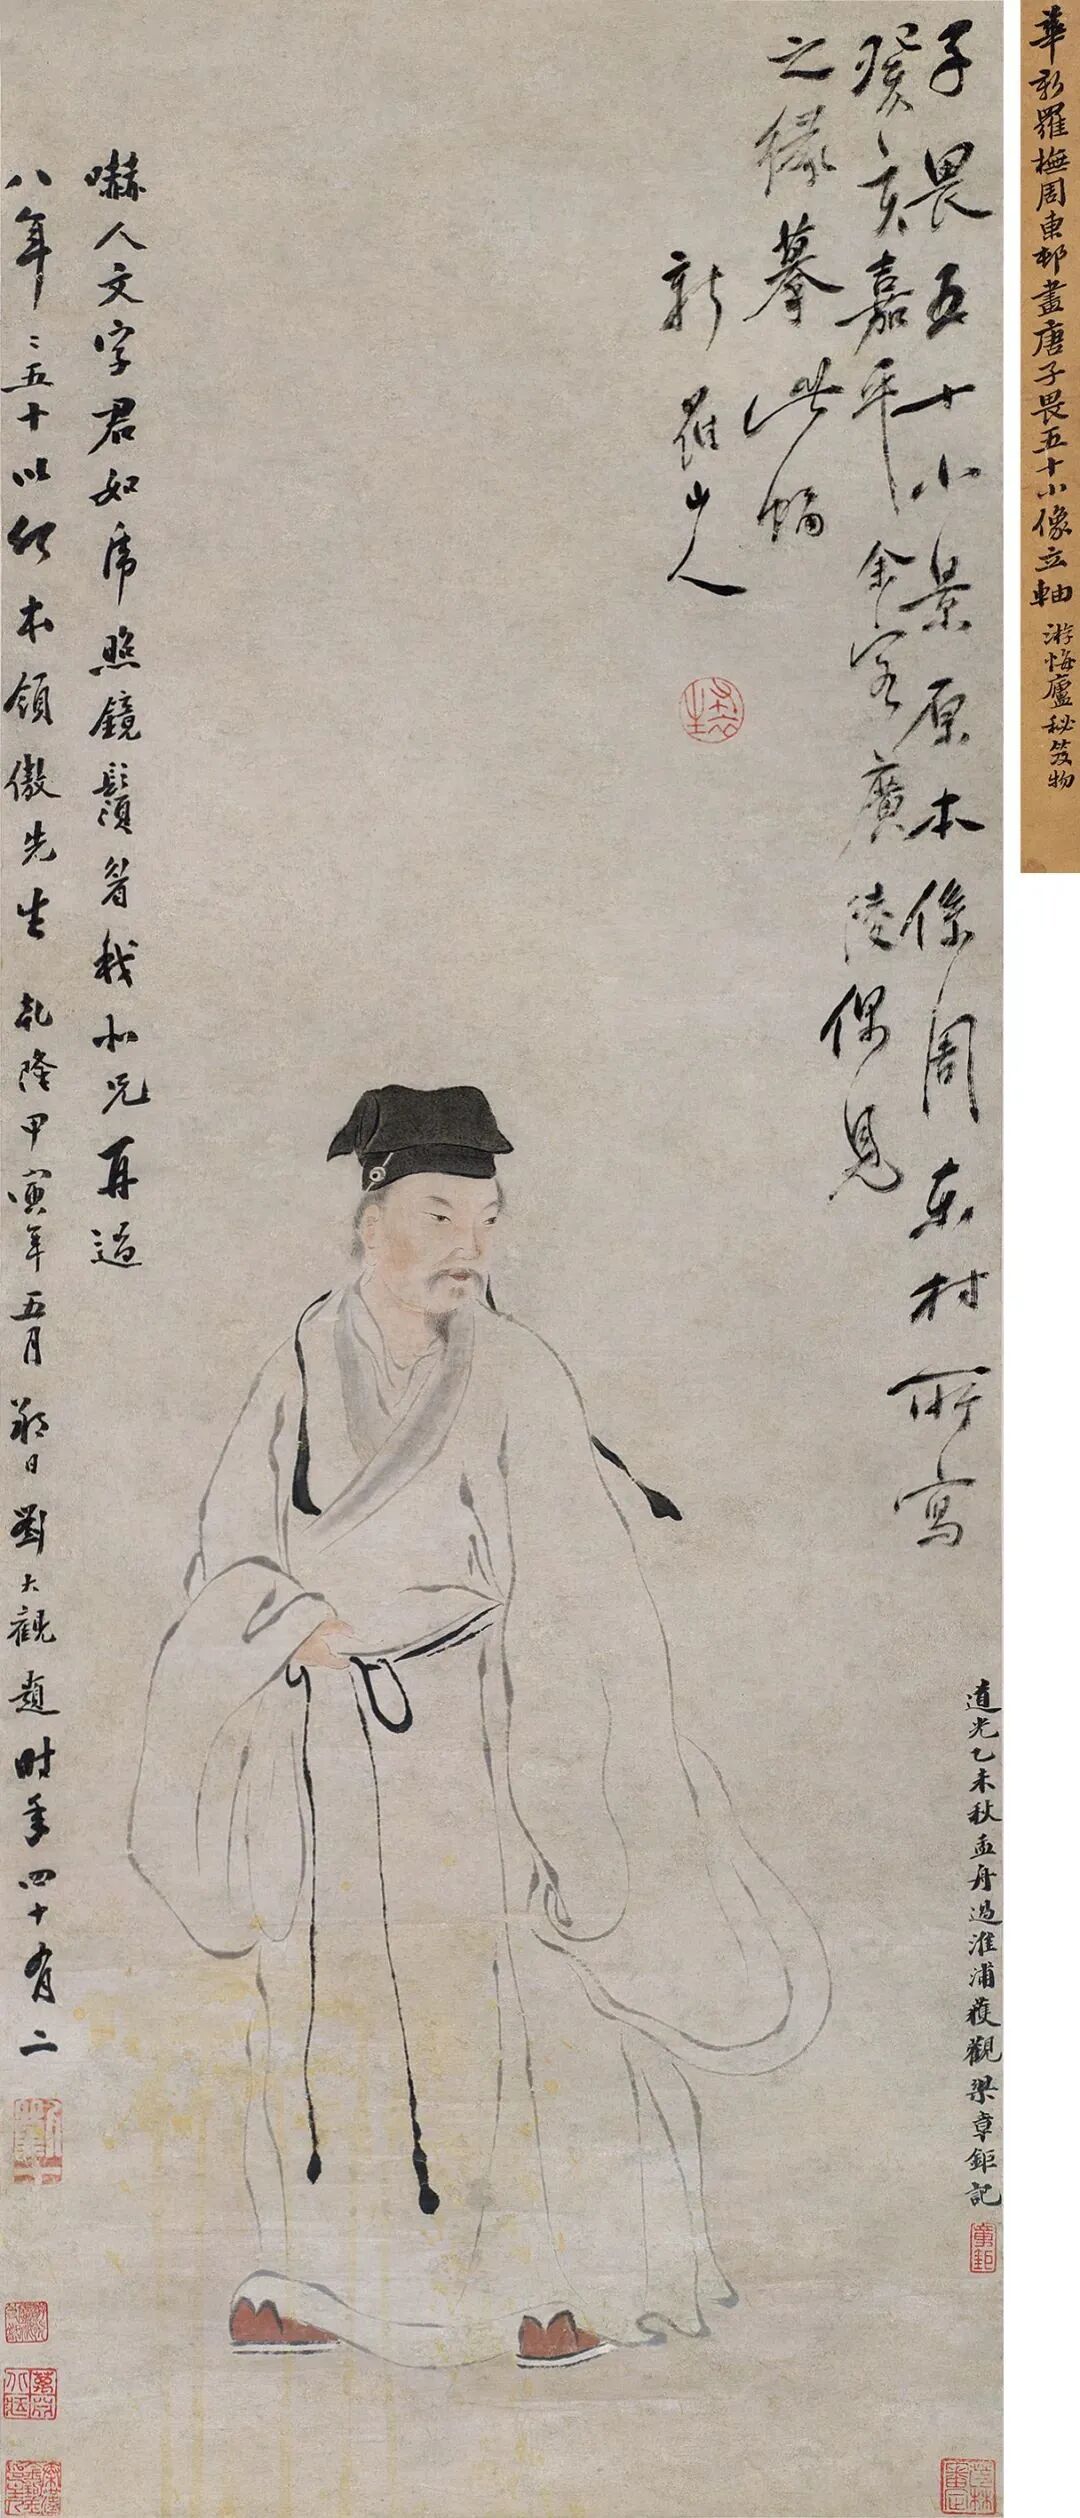 華新羅橅周東邨畫唐子畏五十小像立軸 游悔廬秘笈物
子畏五十小景原本係周東村所寫
癸亥嘉平余客廣陵偶見
之緣摹此幀
新羅山人
道光乙未秋孟舟過淮浦獲觀梁章鉅記
嚇人文字君如虎照鏡鬚眉我小兄再過
八年年五十以何本領傲先生 乾隆甲寅年五月朔日劉大觀題時年四十有二
章鉅